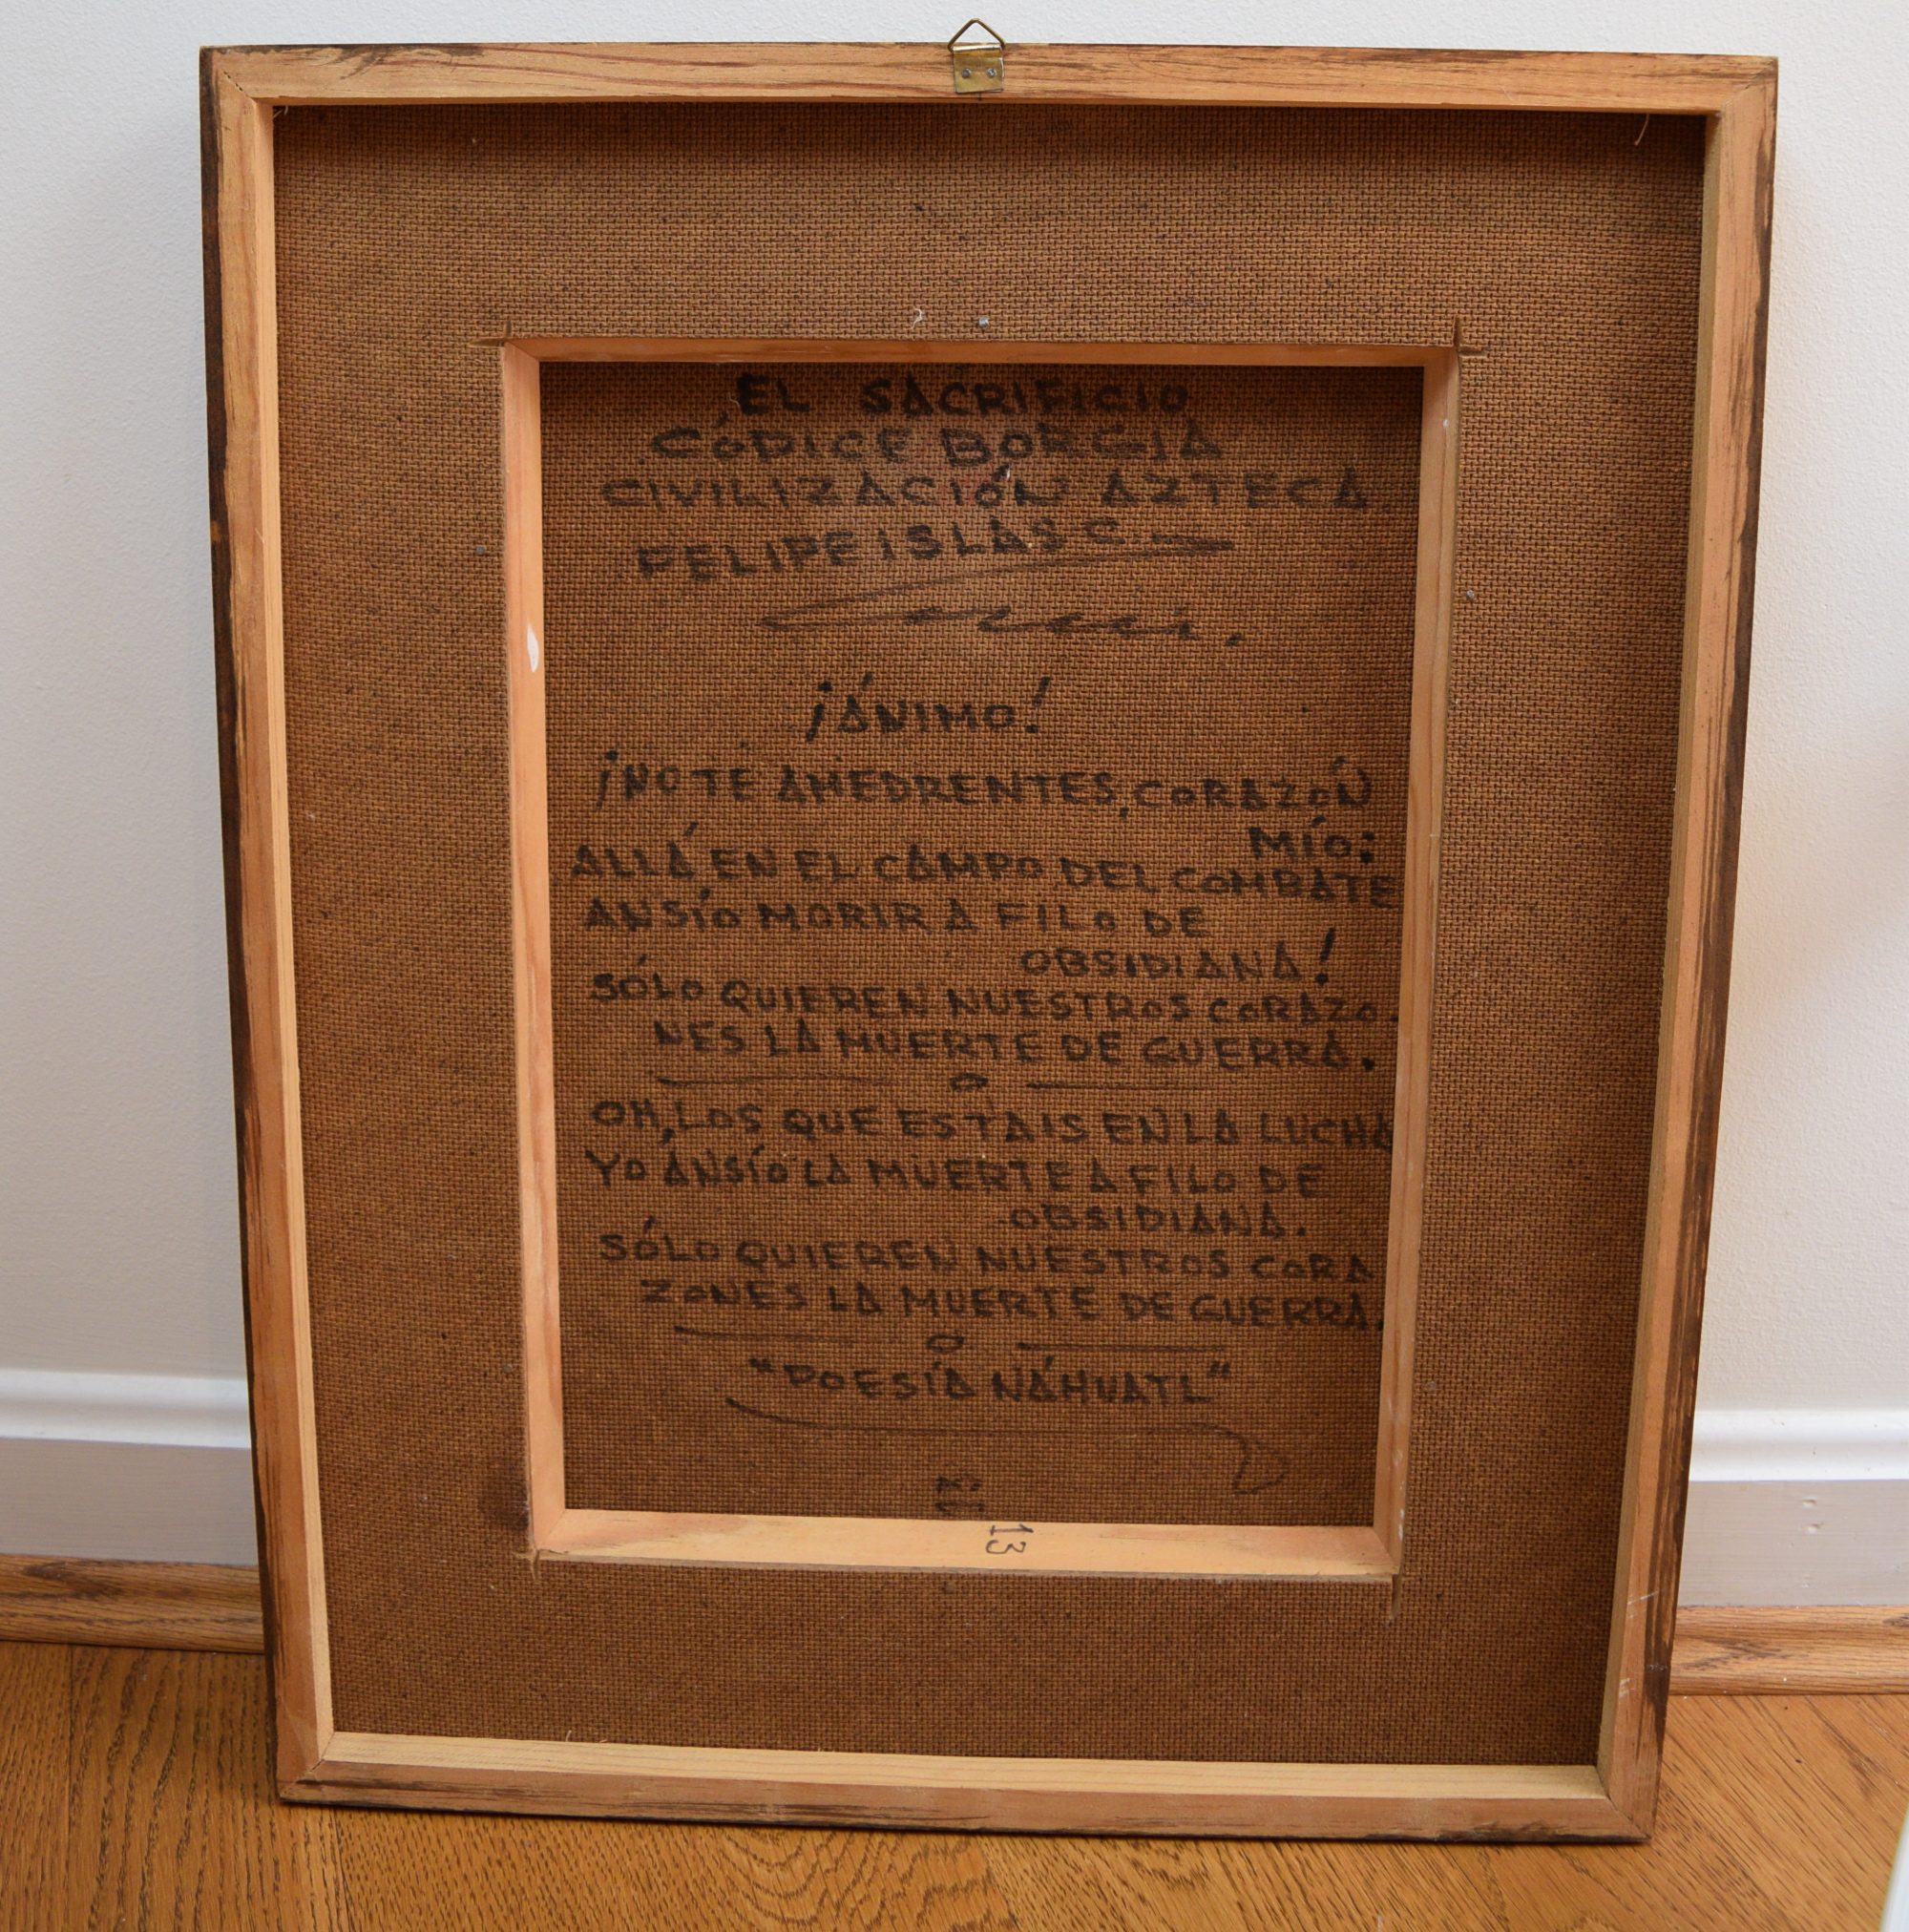 EL SACRIFICIO
CÓDICE BORGIA
CIVILIZACIÓN AZTECA
FELIPE ISLAS C.
¡ÁNIMO!
¡NO TE AMEDRENTES, CORAZÓN
MÍO:
ALLÁ EN EL CAMPO DEL COMBATE
ANSÍO MORIR A FILO DE
OBSIDIANA!
SÓLO QUIEREN NUESTROS CORAZO-
NES LA MUERTE DE GUERRA.
OH, LOS QUE ESTAIS EN LA LUCHA
YO ANSÍO LA MUERTE A FILO DE
OBSIDIANA.
SÓLO QUIEREN NUESTROS CORA
ZONES LA MUERTE DE GUERRA.
"POESÍA NÁHUATL"
13